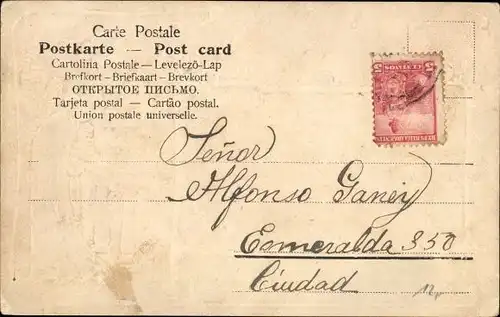 Carte Postale
Postkarte — Post card
Cartolina Postale — Levelező-Lap
Brefkort — Briefkaart — Brevkort
ОТКРЫТОЕ ПИСЬМО.
Tarjeta postal — Cartão postal.
Union postale universelle.
5 CENTAVOS 5
REPUBLICA ARGENTINA
Señor
Alfonso Ganey
Esmeralda 350
Ciudad